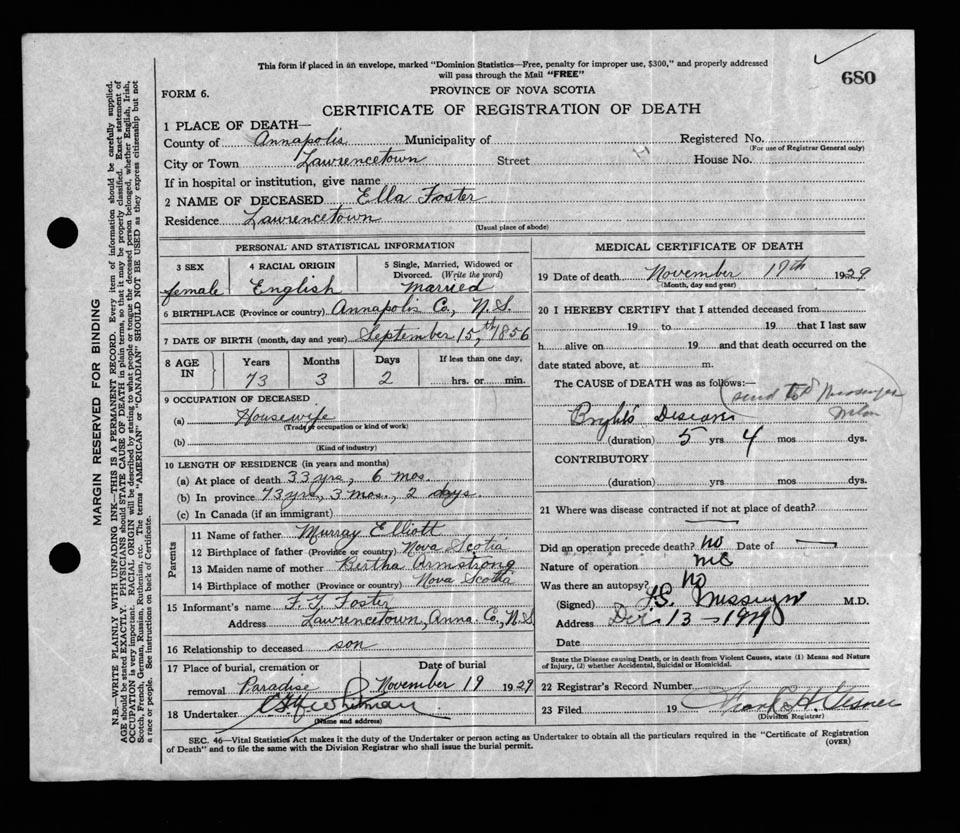 This form if placed in an envelope, marked "Dominion Statistics—Free, penalty for improper use, $300," and properly addressed
will pass through the Mail "FREE"
680
FORM 6.
PROVINCE OF NOVA SCOTIA
CERTIFICATE OF REGISTRATION OF DEATH
1 PLACE OF DEATH—
County of Annapolis Municipality of Registered No.
(For use of Registrar General only)
City or Town Lawrencetown Street House No.
If in hospital or institution, give name
2 NAME OF DECEASED Ella Foster
Residence Lawrencetown
(Usual place of abode)
PERSONAL AND STATISTICAL INFORMATION
3 SEX 4 RACIAL ORIGIN 5 Single, Married, Widowed or
Divorced. (Write the word)
female English Married
6 BIRTHPLACE (Province or country) Annapolis Co., N.S.
7 DATE OF BIRTH (month, day and year) September 15,th 1856
8 AGE IN Years Months Days If less than one day,
73 3 2 hrs. or min.
9 OCCUPATION OF DECEASED
(a) Housewife
(Trade, occupation or kind of work)
(b)
(Kind of industry)
10 LENGTH OF RESIDENCE (in years and months)
(a) At place of death 33 yrs, 6 mos.
(b) In province 73 yrs, 3 mos., 2 days.
(c) In Canada (if an immigrant)
Parents
11 Name of father Murray Elliott
12 Birthplace of father (Province or country) Nova Scotia
13 Maiden name of mother Bertha Armstrong
14 Birthplace of mother (Province or country) Nova Scotia
15 Informant's name F. Y. Foster
Address Lawrencetown, Anna. Co., N.S.
16 Relationship to deceased son
17 Place of burial, cremation or Date of burial
removal Paradise November 19 1929
18 Undertaker Whitman
(Name and address)
MEDICAL CERTIFICATE OF DEATH
19 Date of death November 17th 1929
(Month, day and year)
20 I HEREBY CERTIFY that I attended deceased from
19 to 19 that I last saw
h alive on 19 and that death occurred on the
date stated above, at m.
The CAUSE of DEATH was as follows:—
send to Dr Messenger
Brights Disease
(duration) 5 yrs 4 mos dys.
CONTRIBUTORY
(duration) yrs. mos. dys.
21 Where was disease contracted if not at place of death?
Did an operation precede death? no Date of
Nature of operation
Was there an autopsy? No
(Signed) Messenger M.D.
Address Dec 13—1929
Date
State the Disease causing Death, or in death from Violent Causes, state (1) Means and Nature
of Injury, (2) whether Accidental, Suicidal or Homicidal.
22 Registrar's Record Number
23 Filed 19 Frank H.
(Division Registrar)
SEC. 46—Vital Statistics Act makes it the duty of the Undertaker or person acting as Undertaker to obtain all the particulars required in the "Certificate of Registration
of Death" and to file the same with the Division Registrar who shall issue the burial permit.
(OVER)
MARGIN RESERVED FOR BINDING
N.B.—WRITE PLAINLY WITH UNFADING INK—THIS IS A PERMANENT RECORD. Every item of information should be carefully supplied.
AGE should be stated EXACTLY. PHYSICIANS should STATE CAUSE OF DEATH in plain terms, so that it may be properly classified. Exact statement of
OCCUPATION is very important. RACIAL ORIGIN will be described by stating to what people or tongue the deceased person belonged, whether English, Irish,
Scotch, French, German, Russian, Ruthenian, etc. The terms "AMERICAN" or "CANADIAN" SHOULD NOT BE USED as they express citizenship but not
a race or people. See instructions on back of Certificate.